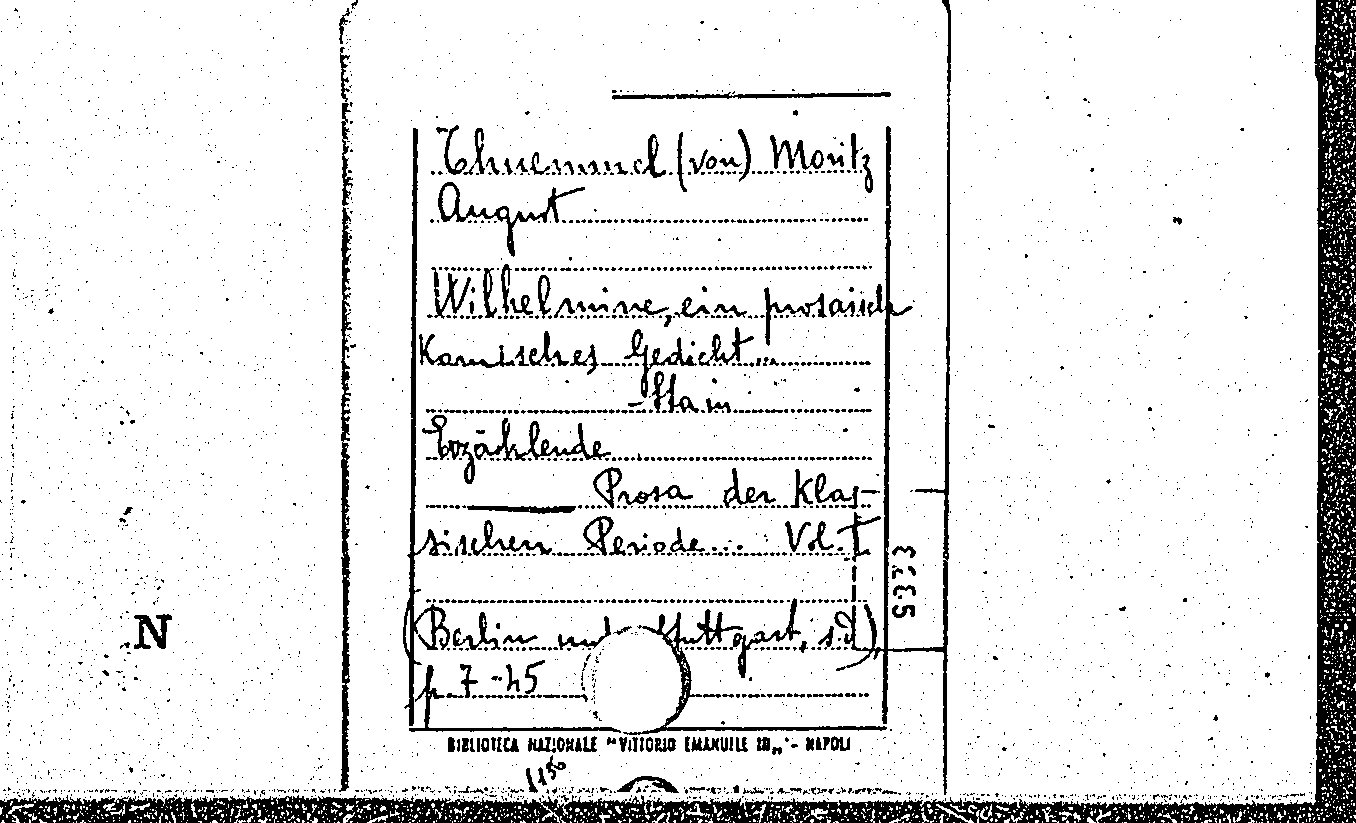 Thuemmel (von) Moritz
August
Wilhelmine, ein prosaisch
Komisches Gedicht...
Erzählende
Prosa der Klas-
sischen Periode... Vol. I
(Berlin und Stuttgart, s.d),
p. 7-45
5333
N
BIBLIOTECA NAZIONALE "VITTORIO EMANUELE III„ - NAPOLI